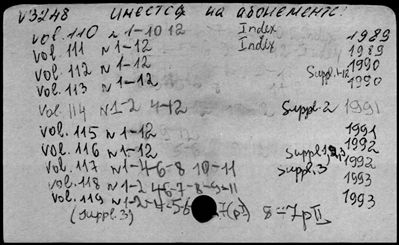 V3248 имеется на абонементе:
vol. 110 N 1-10 12 Index 1989
vol. 111 N 1-12 Index 1989
vol. 112 N 1-12 1990
vol. 113 N 1-12 Suppl. 1990
vol. 114 N 1-2 4-12 Suppl. 2 1991
vol. 115 N 1-12 1991
vol. 116 N 1-12 1992
vol. 117 N 1-4-6-8 10-11 Suppl. 1992
vol. 118 N 1-2 4 6-7-8-9-11 Suppl. 3 1993
vol. 119 N 1-2-4-5-6 1993
(Suppl. 3)